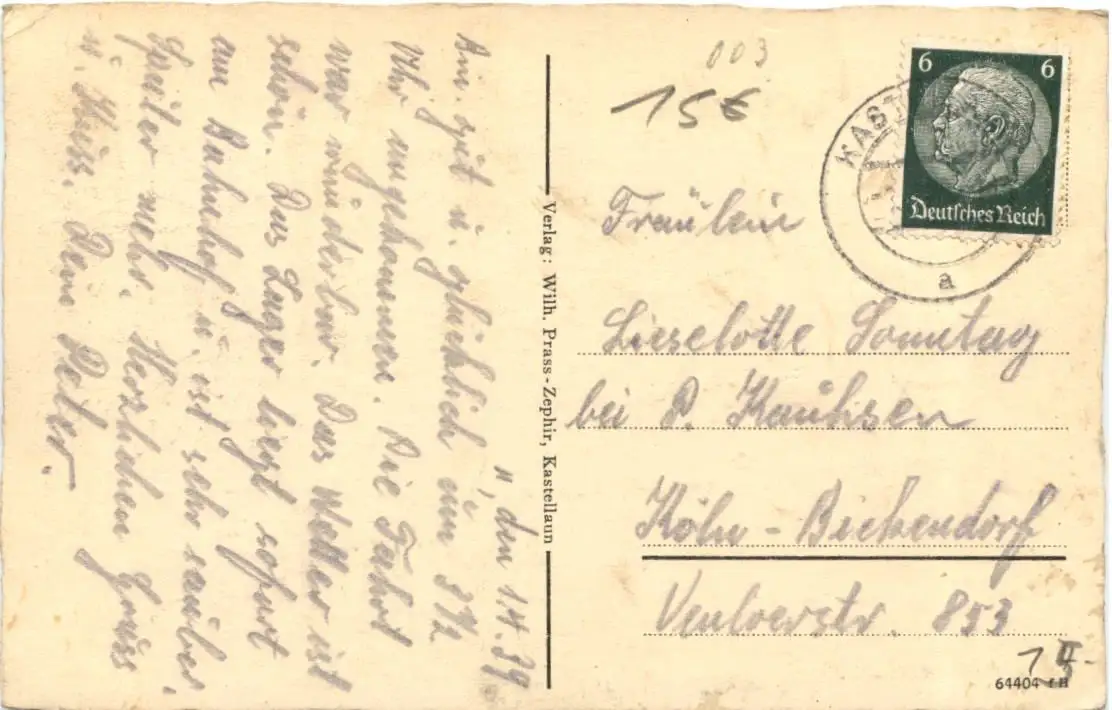 ", den 1.4.39
Bin gut u. glücklich um 3½
Uhr angekommen. Die Fahrt
war wunderbar. Das Wetter ist
schön. Das Lager liegt sofort
am Bahnhof u. ist sehr sauber.
Später mehr. Herzlichen Gruss
u. Kuss. Dein Peter.
Verlag: Wilh. Prass-Zephir, Kastellaun
003
15€
6 6
Deutsches Reich
KAST
a
Fräulein
Lieselotte Sonntag
bei P. Kauhsen
Köln - Bickendorf
Venloerstr. 853
64404